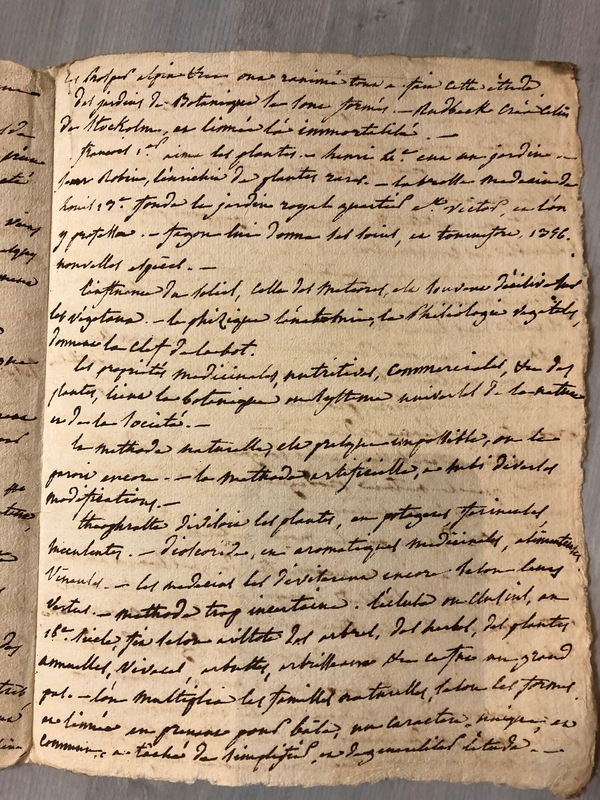 les Prosper alpin &c ont ranimé tour a fair cette étude
des jardins de Botanique se sont formés. - Rudbeck créa celui
de Stockolm, et linnée l'a immortalisé. -
françois 1er aima les plantes. - henri 4e eut un jardin. -
jean Robin, l'enrichit de plantes rares. - la brosse medecin de
Louis 13e fonda le jardin royal quartier St Victor, et l'on
y professa. - fagon lui donna ses soins, et tournefort 1396.
nouvelles especes. -
L'influence du soleil, celle des meteores, est souvent décisive sur
les végétaux. - la phizique l'anatomie, la Phisiologie végétales,
donnent la clef de la bot.
Les proprietés medicinales, nutritives, commerciales, &c des
plantes, lient la botanique au systeme universel de la nature
et de la societé. -
la methode naturelle, est presque impossible, on le
paroit encore. - la methode artificielle, a subi diverses
modifications. -
theophraste divisoit les plantes, en potageres farineuses
succulentes. - dioscoride, en aromatiques medicinales, alimenteuses
Vineuses. - les medecins les diviserent encore selon leurs
vertus. - methode trop incertaine. l'écluse ou clusius, au
16e siecle fit selon celle des arbres, des herbes, des plantes
annuelles, vivaces, arbustes, arbrisseaux &c ce fut un grand
pas. - l'on multiplia les familles naturelles, selon les formes.
et linnée en prenant pour base, un caractere unique, et
commun, a tâché de simplifier, et de generaliser l'étude. -